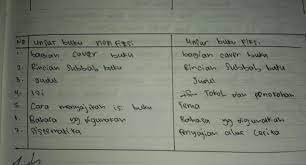 No Unsur buku non Fiksi Unsur buku Fiksi.
bagian cover buku bagian cover buku
2. Rincian Subbab buku Rincian Subbab buku
3. Judul Judul
4. Isi Tokoh dan penokohan
5. Cara menyajikan isi buku Tema
6. Bahasa yg digunakan Bahasa yg digunakan
7. Sistematika Penyajian alur cerita